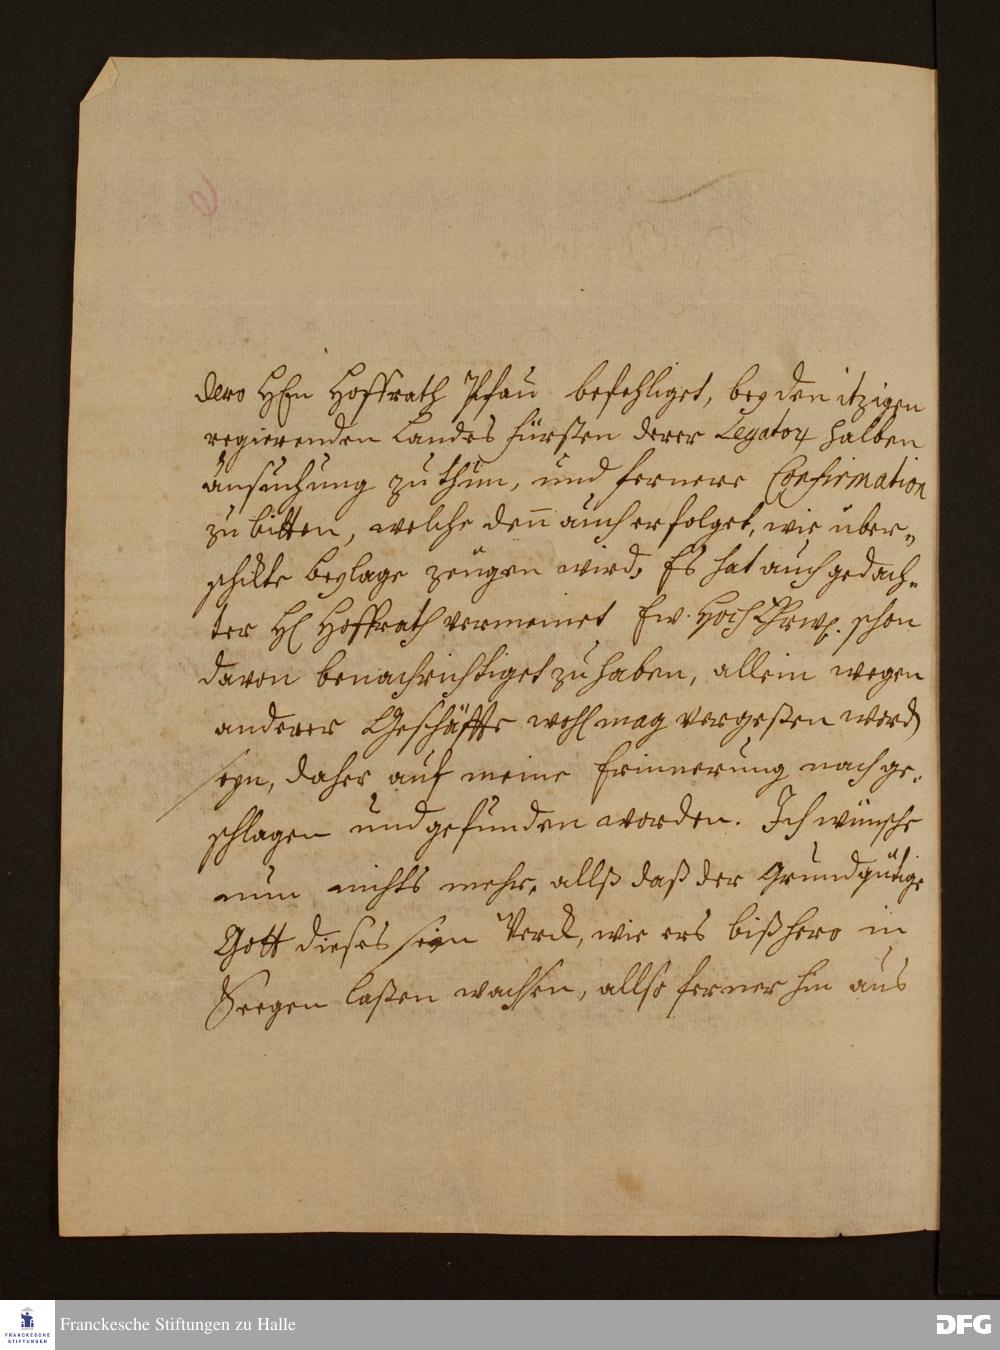 6
dero HEn Hoffrath Pfau befehliget, bey den itzigen
regierenden Landes Fürsten derer Legator halben
ansuchung zu thun, und fernere Confirmation
zu bitten, welche deñ auch erfolget, wie über„
schikte beylage zeugen wird; Es hat auch gedach„
ter H Hoffrath vermeinet Ew. HochEhrw. schon
davon benachrichtiget zu haben, allein wegen
anderer Geschäffte wohl mag vergeßen word
seyn, daher auf meine Erinnerung nach ge„
schlagen und gefunden worden. Ich wünsche
nun nichts mehr, allß daß der Grundgütige
Gott dieses sein Werck, wie ers bißhero in
Seegen laßen wachsen, allso ferner hin aus
FRANCKESCHE
STIFTUNGEN
Franckesche Stiftungen zu Halle
DFG